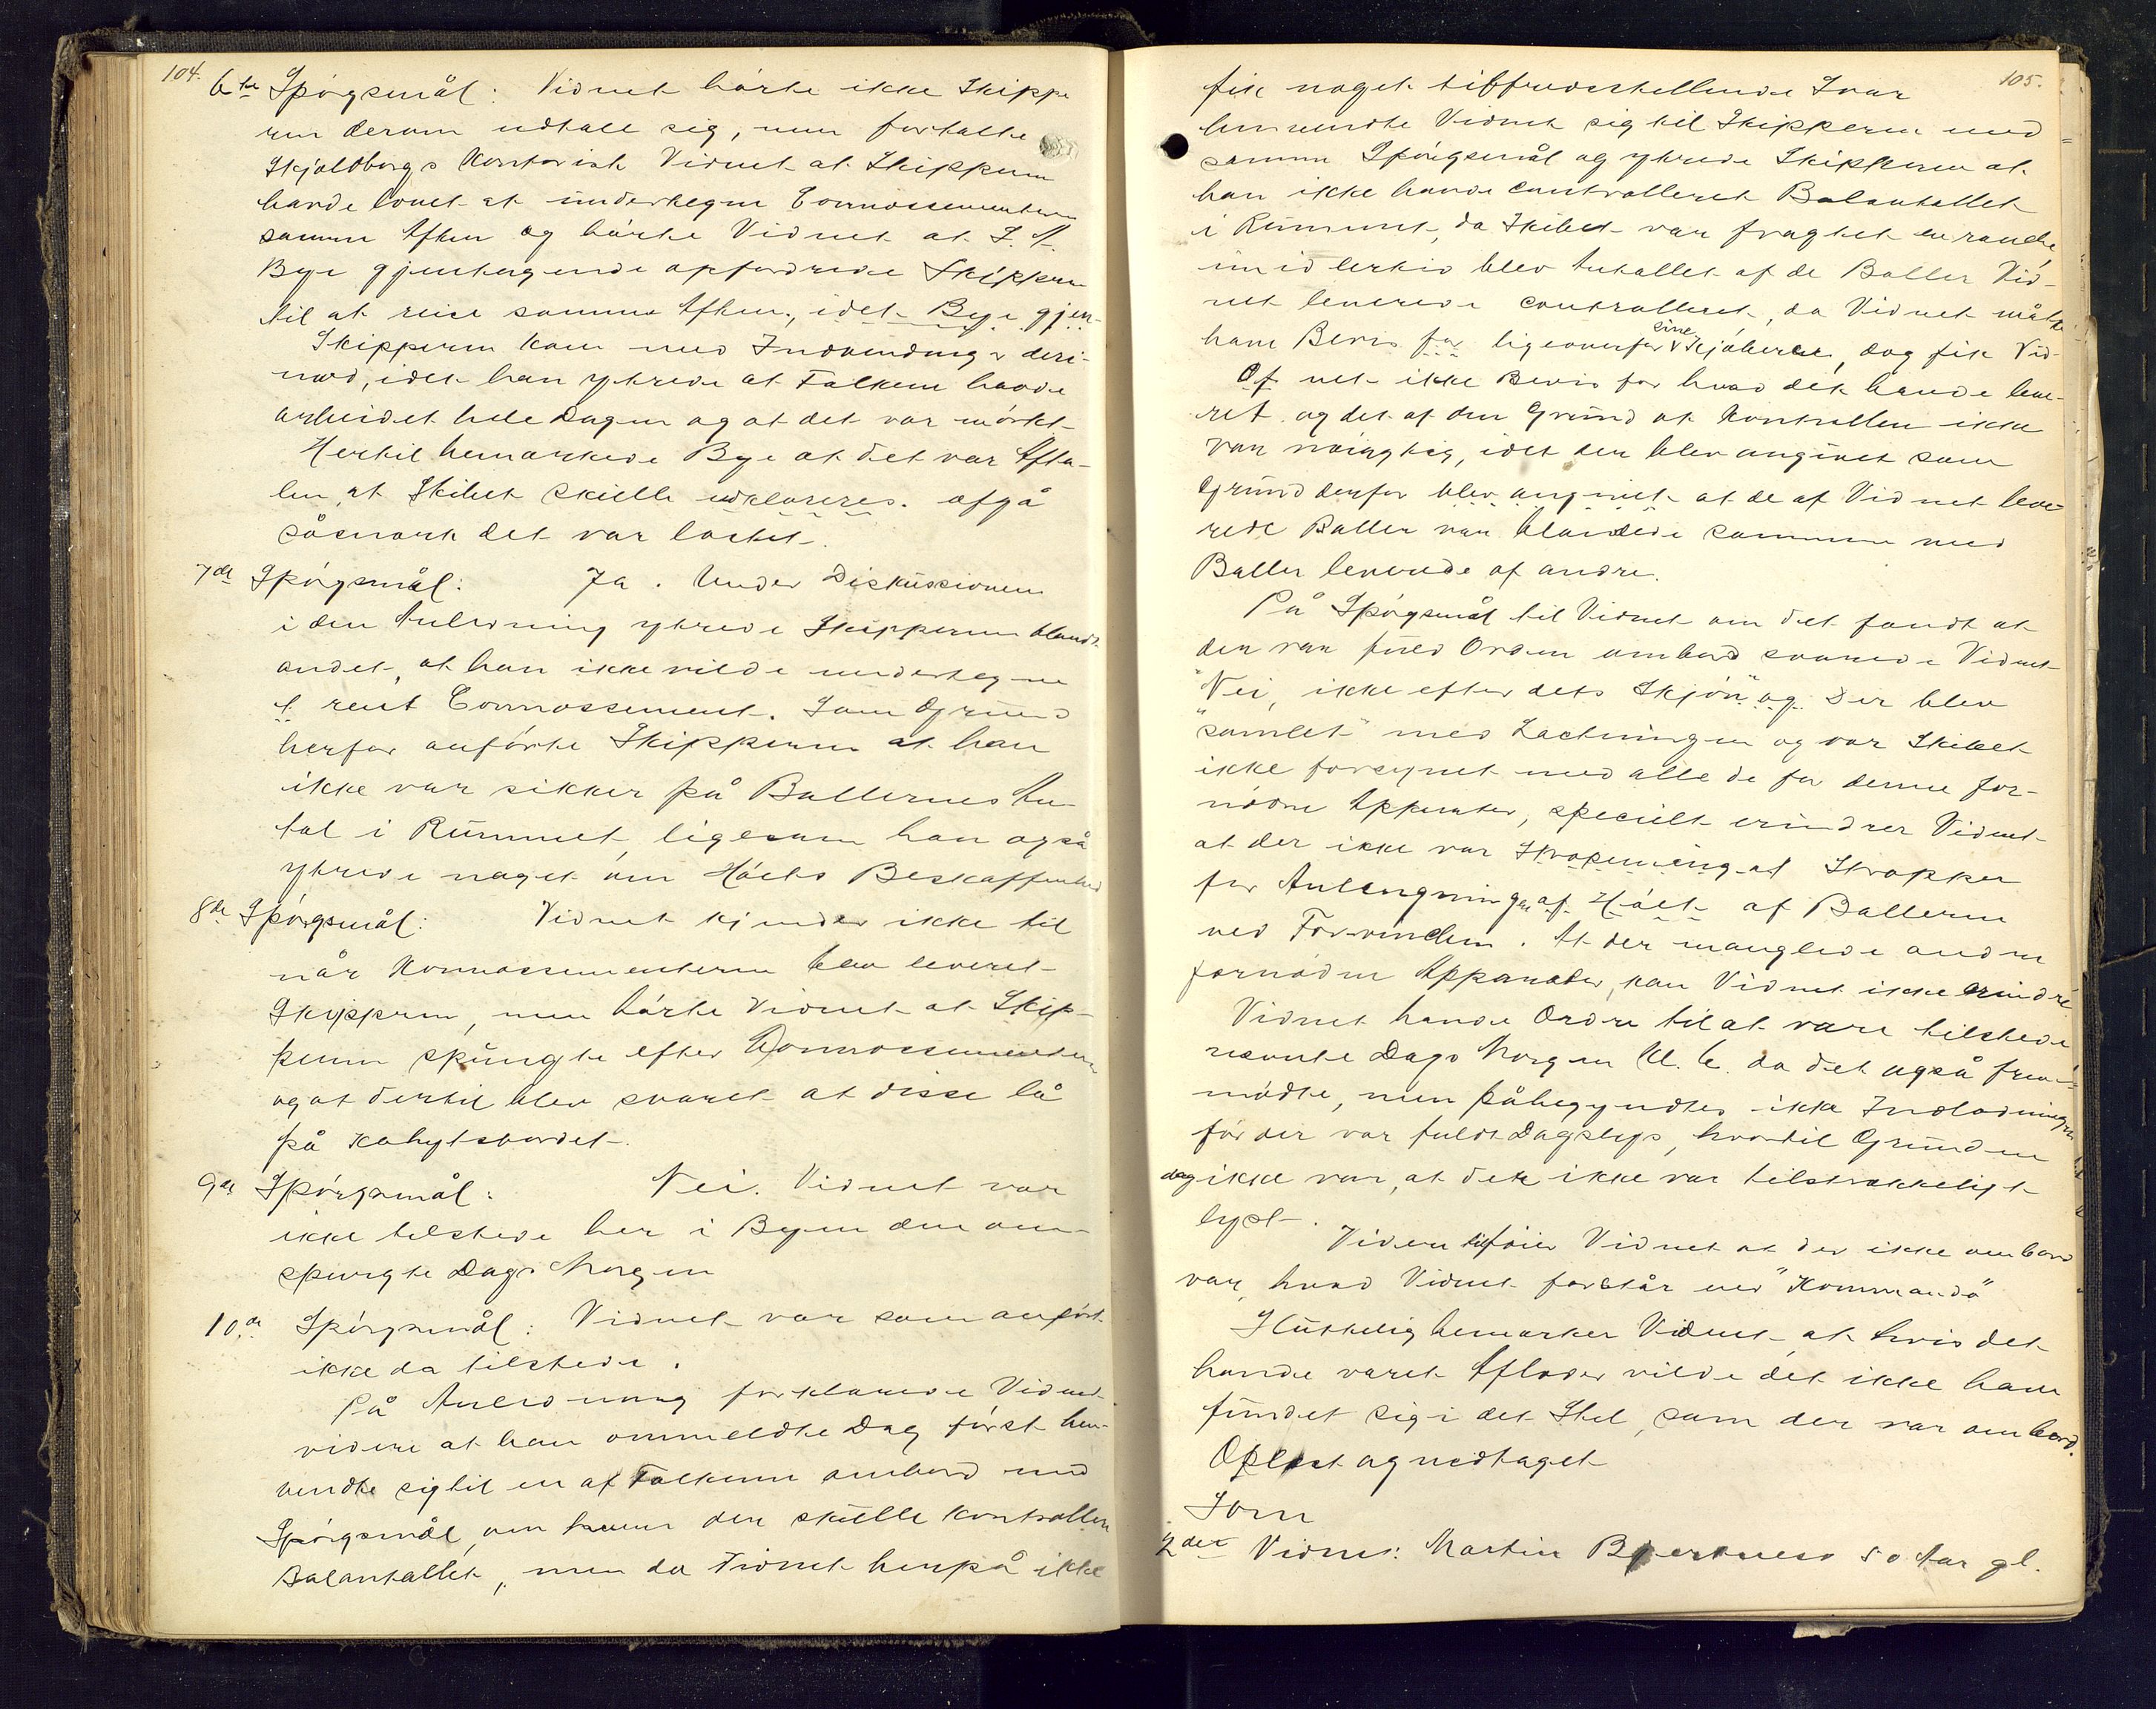 104.
6te Spørgsmål: Vidnet hørte ikke Skippe
ren derom udtale sig, men fortalte
Skjoldborgs Kontorist Vidnet at Skipperen
havde lovet at undertegne Connossementerne
samme Aften og hørte Vidnet at J. A.
Bye gjentagende opfordrede Skipperen
til at reise samme Aften, idet Bye gjen-
Skipperen kom med Indvendinger deri-
mod, idet han ytrede at Folkene havde
arbeidet hele Dagen og at det var mørkt
Hertil bemærkede Bye at det var Afta-
len, at Skibet skulle udklareres. afgå
såsnart det var lastet.
7de Spørgsmål: Ja. Under Diskussionen
i den Anledning ytrede Skipperen blandt
andet, at han ikke vilde undertegne
t rent Connossement. Som Grund
herfor anførte Skipperen at han
ikke var sikker på Ballernes An-
tal i Rummet, ligesom han også
ytrede noget om Høets Beskaffenhed
8de Spørgsmål: Vidnet kjender ikke til
når Konnossementerne blev leveret
Skipperen, men hørte Vidnet at Skip-
peren spurgte efter Connossementerne
og at dertil blev svaret at disse lå
på Kahytsbordet.
9de Spørgsmål: Nei. Vidnet var
ikke tilstede her i Byen den om-
spurgte Dags Morgen
10.de Spørgsmål: Vidnet var som anført
ikke da tilstede.
På Anledning forklarede Vidnet
videre at han ommeldte Dag først hen-
vendte sig til en af Folkene ombord med
Spørgsmål, om hvem der skulle kontrollere
Balantallet, men da Vidnet herpå ikke
105.
fik noget tilfredsstillende Svar
henvendte Vidnet sig til Skipperen med
samme Spørgsmål og ytrede Skipperen at
han ikke havde controlleret Balantallet
i Rummet, da Skibet var fragtet en rouche,
imidlertid blev Antallet af de Baller Vid-
net leverede controlleret, da Vidnet måtte
have Bevis for ligeoverfor sine Kjøbere, dog fik Vid-
Of net ikke Bevis for hvad det havde leve-
ret og det af den Grund at Kontrollen ikke
var nøiagtig, idet der blev angivet som
Grund derfor blev angivet at de af Vidnet leve-
rede Baller var blandede sammen med
Baller leverede af andre.
På Spørgsmål til Vidnet om det fandt at
der var fuld Orden ombord svarede Vidnet
"Nei, ikke efter dets Skjøn" og Der blev
"somlet" med Lastningen og var Skibet
ikke forsynet med alle de for denne for-
nødne Apparater, specielt erindrer Vidnet
at der ikke var Stropening at Stropper
for Anlengningen af Høet af Ballerne
ved Forvinchen. At der manglede andre
fornødne Apparater, kan Vidnet ikke erindre
Vidnet havde Ordre til at være tilstede
næste Dags Morgen Kl. 6. da det også frem-
mødte, men påbegyndtes ikke Indladningen
før der var fuldt Dagslys, hvortil Grunden
dog ikke var, at det ikke var tilstrækkeligt
lyst.
Videre tilføier Vidnet at der ikke ombord
var, hvad Vidnet forstår ved "Kommando"
Sluttelig bemærker Vidnet at hvis det
havde været Aflader vilde det ikke have
fundet sig i det Stel, som der var ombord.
Oplæst og vedtaget
Som
2det Vidne: Martin 50 Aar gl.